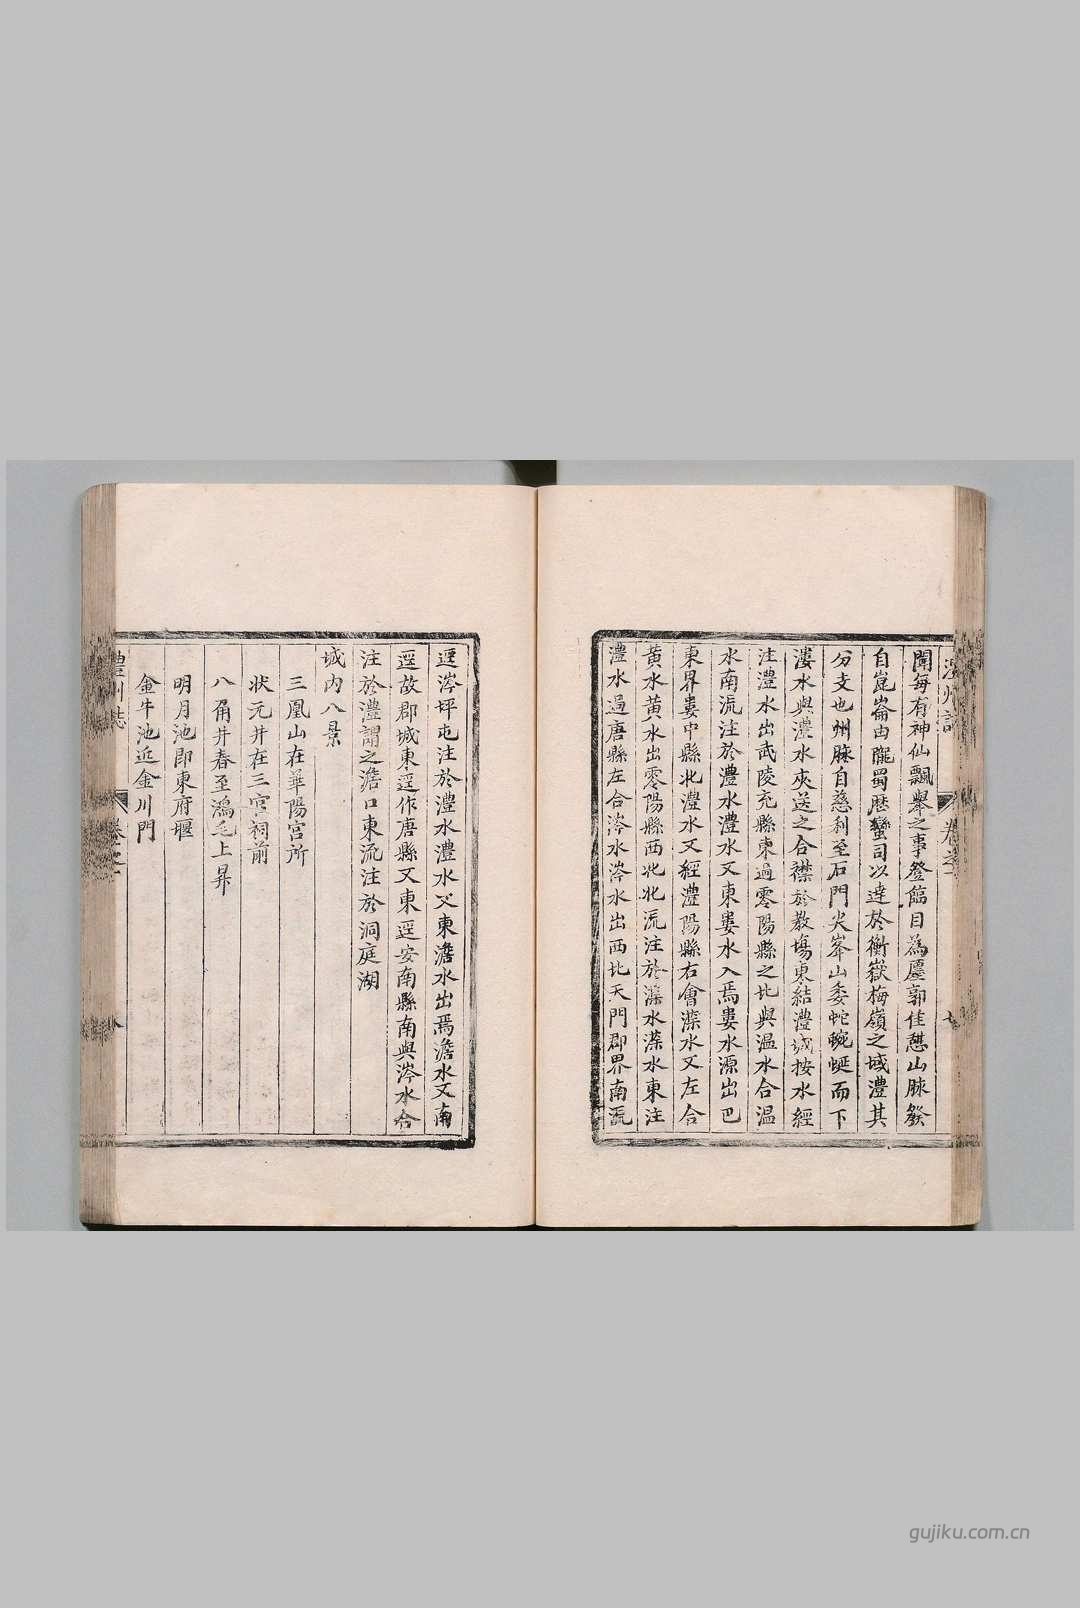 澧州誌 卷之一
聞每有神仙飄舉之事登臨目為塵郭佳憇山脉發
自崑崙由隴蜀歴蠻司以逹於衡嶽梅嶺之域澧其
分支也州脉自慈利至石門尖峯山委蛇蜿蜒而下
漊水與澧水夾送之合襟於教塲東結澧城按水經
注澧水出武陵充縣東過零陽縣之北與温水合温
水南流注於澧水澧水又東婁水入焉婁水源出巴
東界婁中縣北澧水又經澧陽縣右會渫水又左合
黄水黄水出零陽縣西北北流注於渫水渫水東注
澧水過唐縣左合涔水涔水出西北天門郡界南流
逕涔坪屯注於澧水澧水又東澹水出焉澹水又南
逕故郡城東逕作唐縣又東逕安南縣南與涔水合
注於澧謂之澹口東流注於洞庭湖
城内八景
三凰山在華陽宫所
状元井在三官祠前
八角井春至鴻毛上昇
明月池即東府堰
金牛池近金川門
澧州誌 卷之一 八
gujiku.com.cn